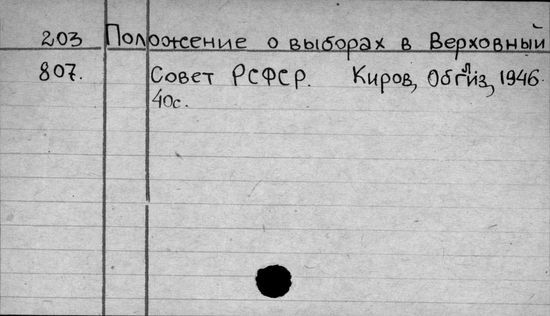 203 Положение о выборах в Верховный
807. Совет РСФСР. Киров, Облгиз, 1946.
40с.